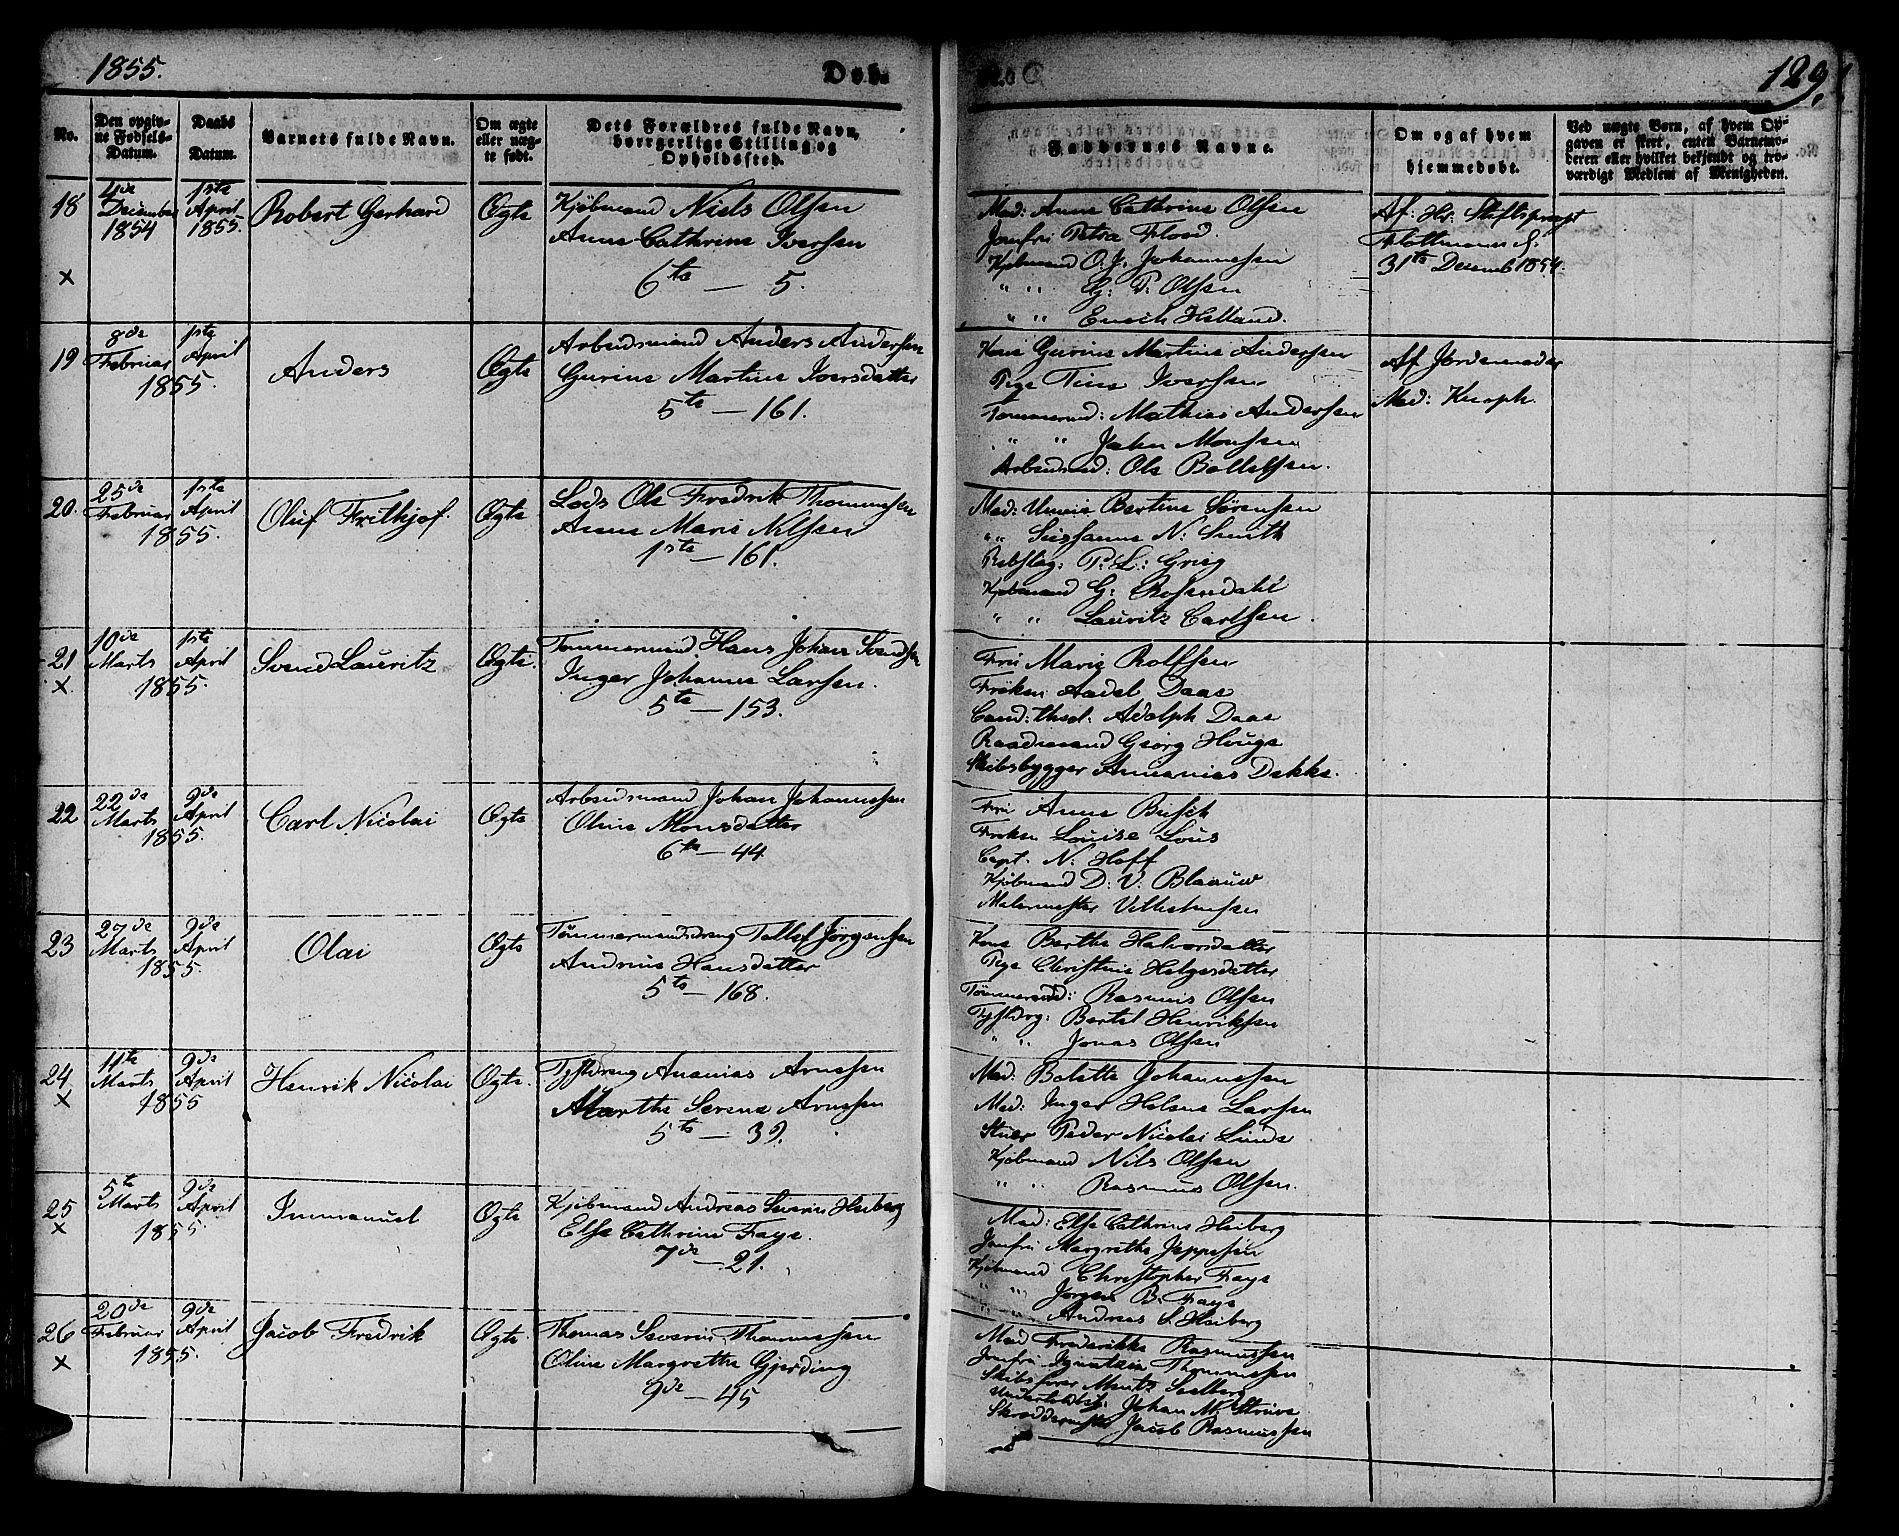 1855.
Døb-
129,
No.
Den opgiv-
ne Fødsels-
Datum.
Daabs
Datum.
Barnets fulde Navn.
Om ægte
eller uæg-
te født.
Dets Forældres fulde Navn,
borgerlige Stilling og
Opholdssted.
Faddernes Navne.
Om og af hvem
hjemmedøbt.
Ved uægte Børn, af hvem Op-
gaven er skeet, enten Barnemo-
deren eller hvilket bekjendt og tro-
værdigt Medlem af Menigheden.
18
×
4de
December
1854
1ste
April
1855.
Robert Gerhard
Ægte
Kjøbmand Niels Olsen
Anne Cathrine Iversen
6te — 5.
Mad: Anne Cathrine Olsen
Jomfru Petra Flood.
Kjøbmand O. J. Johannesen
" " G: P. Olsen
" " Enoch Helland.
Af: Hr: Stiftsprovst
Flottmann d.
31te Decemb 1854.
19
8de
Februar
1ste
April
1855.
Anders
Ægte
Arbeidsmand Anders Andersen
Gurine Martine Iversdatter
5te — 161.
Kone Gurine Martine Andersen
Pige Tine Iversen
Tømmermd: Mathias Andersen
" " John Monsen
Arbeidsmd: Ole Bottelsen.
Af Jordemoder
Mad: Knoph.
20.
25de
Februar
1ste
April
1855.
Oluf Frithjof.
Ægte
Lods Ole Fredrik Thommesen
Anne Marie Nilsen
1ste — 161.
Mad: Bertine Sørensen
" Sussanne N: Smith
Rebslag: P: L: Grieg
Kjøbmand G: Rosendahl
" " Lauritz Carlsen.
21
×
10de
Marts
1ste
April
1855.
Svend Lauritz
Ægte.
Tømmermand Hans Johan Svendsen
Inger Johanne Larsen.
5te — 153.
Fru Marie Rolfsen
Frøken Aadel Daae
Cand: theol. Adolph Daae
Raadmand Georg Houge
Skibsbygger Annanias Dekke.
22
22de
Marts
9de
April
1855.
Carl Nicolai
Ægte
Arbeidsmand Johan Johannesen
Oline Monsdatter
6te — 44.
Fru Anne Busch
Frøken Louise Lous
Capt. N: Hoff
Kjøbmand D: V: Blaauw
Malermester Vilhelmsen
23
27de
Marts
9de
April
1855.
Olai
Ægte
Tømmermandsdreng Tollef Jørgensen
Andrine Hansdatter
5te — 168.
Kone Berthe Halvorsdatter
Pige Christine Helgesdatter
Tømmermd: Rasmus Olsen
Bertel Henriksen
" " Jonas Olsen
24
×
11te
Marts
9de
April
1855
Henrik Nicolai
Ægte.
Ananias Arnesen
Marthe Serene Arnesen
5te — 39.
Mad: Bolette Johannesen
Mad: Inger Helene Larsen
Peder Nicolai Linde
Kjøbmand Nils Olsen
" " Rasmus Olsen.
25
×
5te
Marts
9de
April
1855.
Immanuel
Ægte
Kjøbmand Andreas Severin Heiberg
Else Cathrine Faye.
7de — 21.
Mad: Else Cathrine Heiberg
Jomfru Margrethe Jeppesen
Kjøbmand Christopher Faye
" " Jørgen B: Faye
" " Andreas S. Heiberg
26
×
20de
Februar
9de
April
1855.
Jacob Fredrik
Ægte.
Thomas Severin Thommesen
Oline Margrethe Gjerding
9de — 45
Mad Frederikke Rasmussen
Jomfru Thommesen
Skibsfører Mentz Seelberg
Johan M. Struve
Skreddermester Jacob Rasmussen